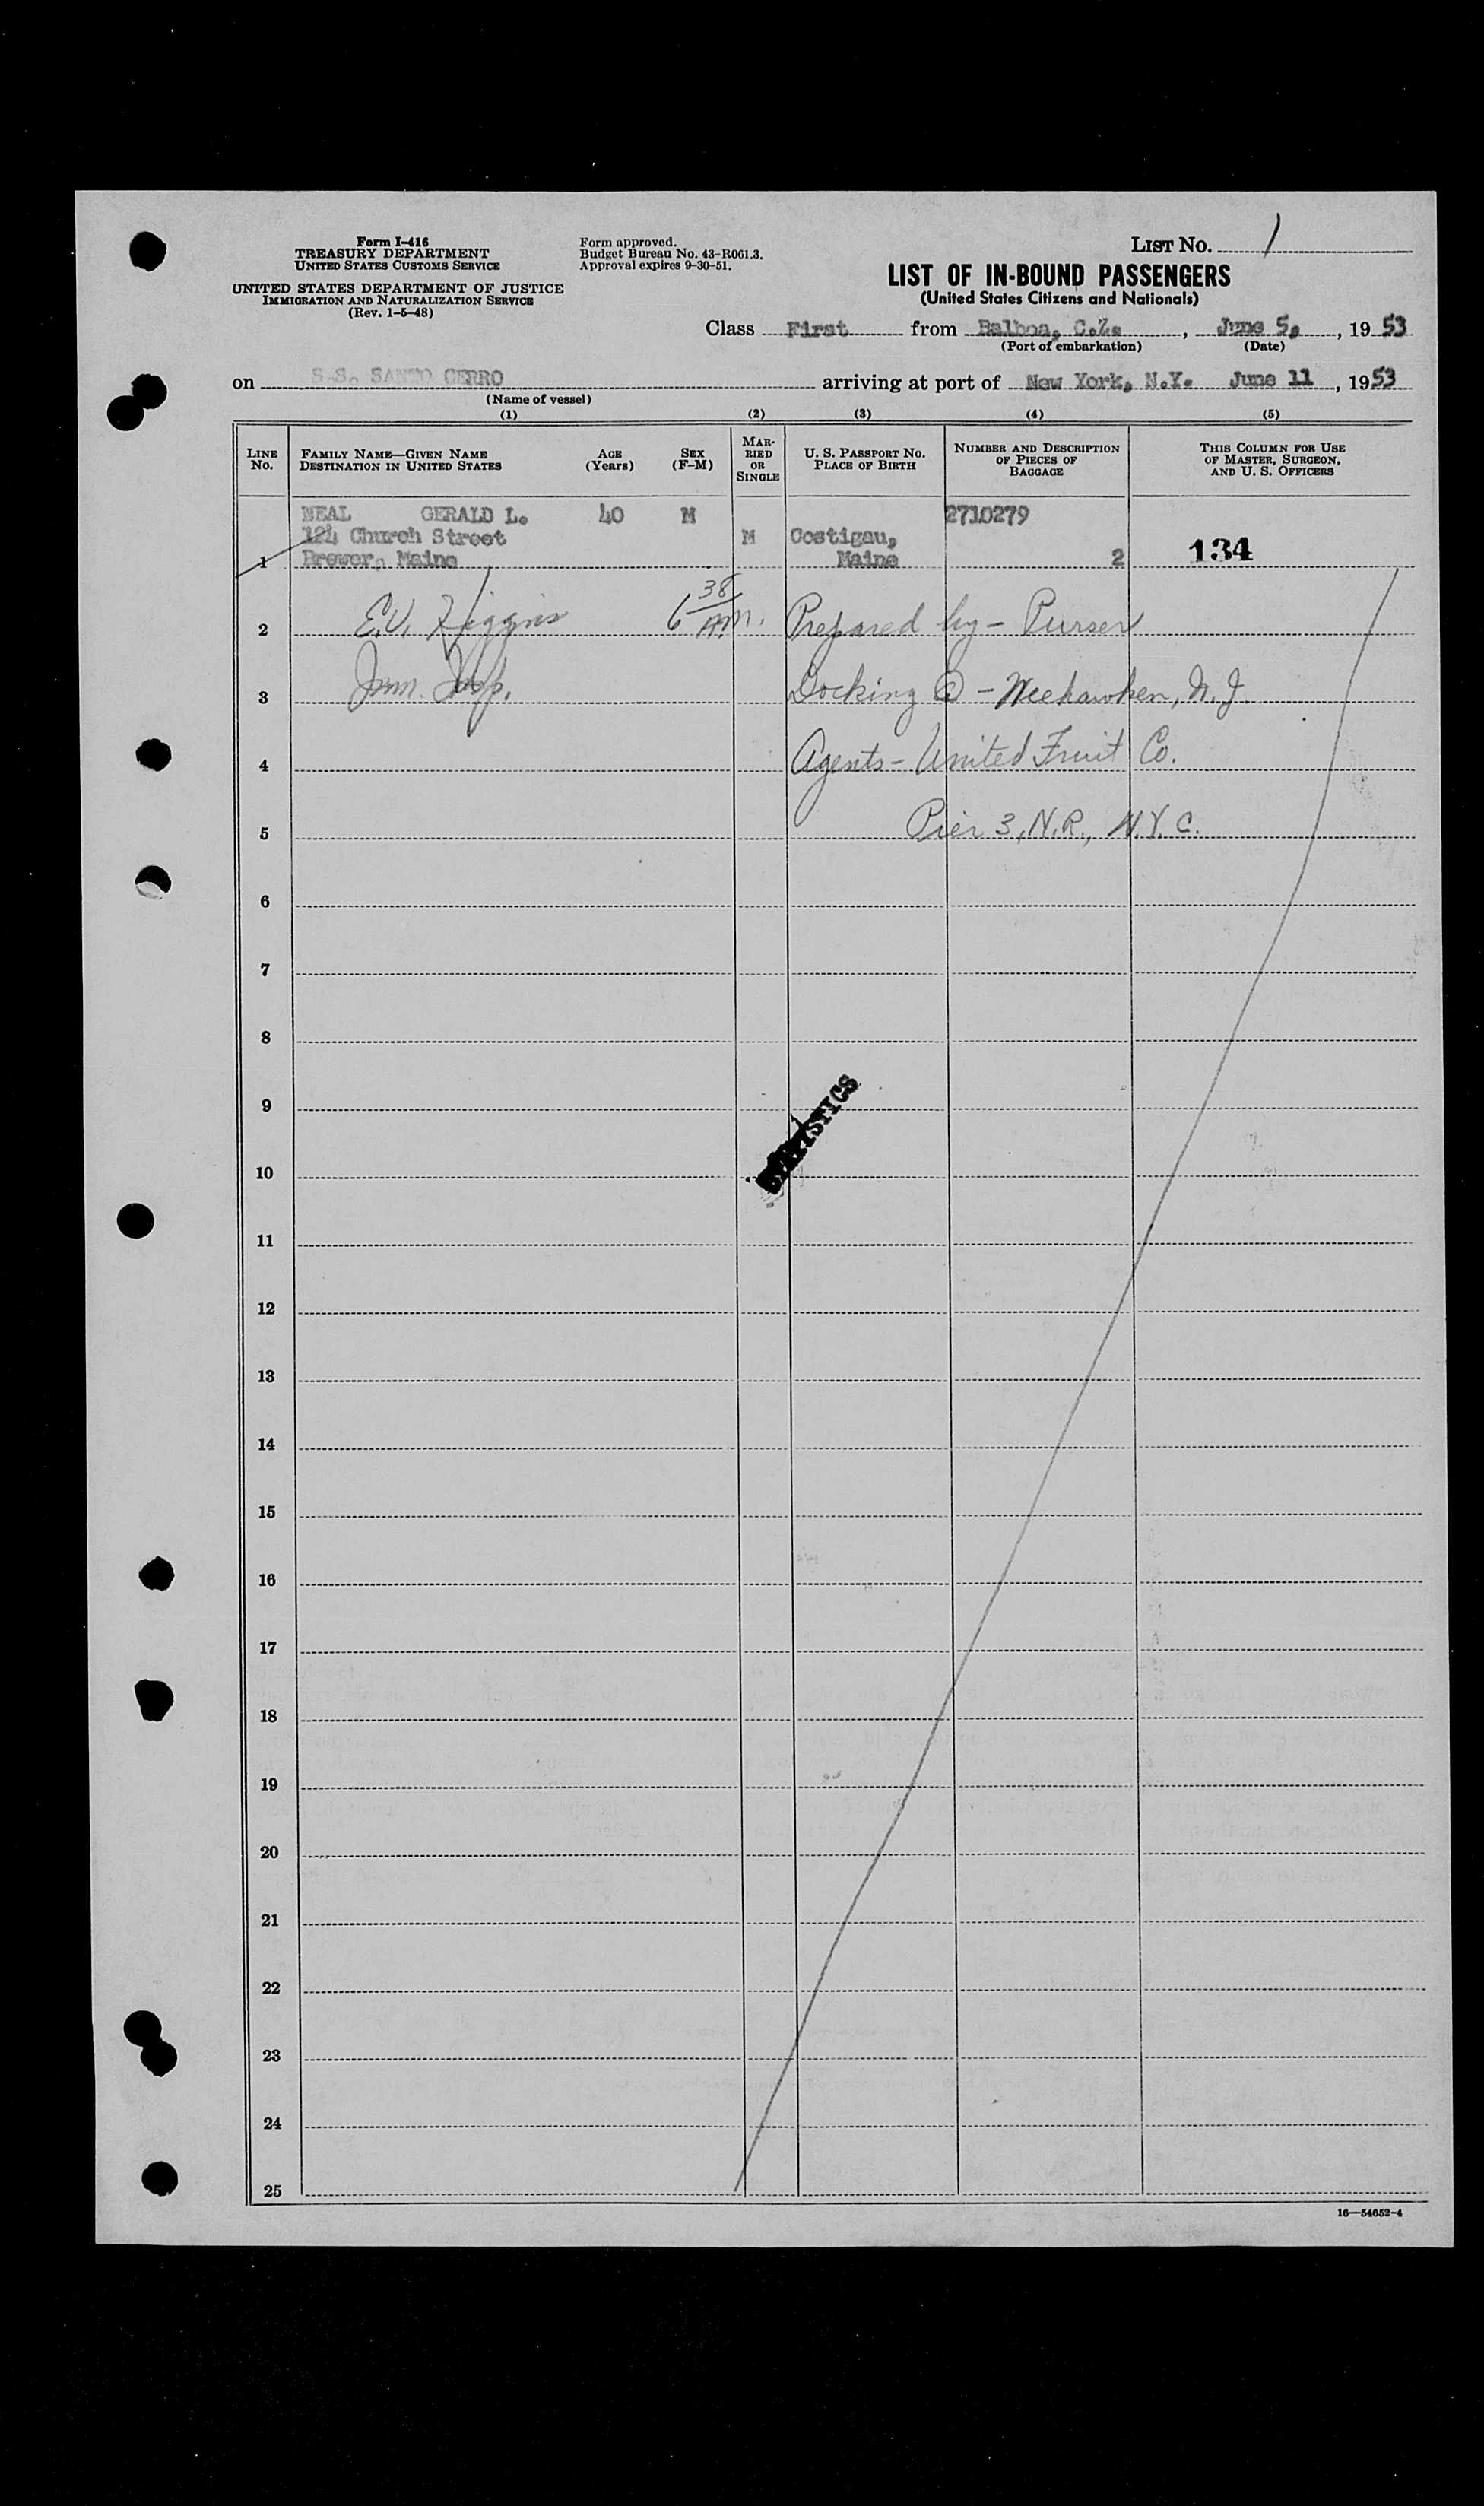 Form I-416
TREASURY DEPARTMENT
UNITED STATES CUSTOMS SERVICE
UNITED STATES DEPARTMENT OF JUSTICE
IMMIGRATION AND NATURALIZATION SERVICE
(Rev. 1-5-48)
Form approved.
Budget Bureau No. 43-R061.3.
Approval expires 9-30-51.
LIST No. 1
LIST OF IN-BOUND PASSENGERS
(United States Citizens and Nationals)
Class First from Balboa, C.Z. , June 5, , 19 53
(Port of embarkation) (Date)
on S.S. SANTO CERRO arriving at port of New York, N.Y. June 11 , 1953
(Name of vessel)
(1) (2) (3) (4) (5)
LINE No. FAMILY NAME—GIVEN NAME DESTINATION IN UNITED STATES AGE (Years) SEX (F-M) MAR-RIED OR SINGLE U. S. PASSPORT No. PLACE OF BIRTH NUMBER AND DESCRIPTION OF PIECES OF BAGGAGE THIS COLUMN FOR USE OF MASTER, SURGEON, AND U. S. OFFICERS
NEAL GERALD L. 40 M 2710279
124 Church Street M Costigau,
1 Brewer, Maine Maine 2 134
2 E.V. Higgins 6 38 AM. Prepared by - Purser
3 Imm. Insp. Docking @ - Weehawken, N.J.
4 Agents - United Fruit Co.
5 Pier 3, N.R., N.Y.C.
6
7
8
9
STATISTICS
10
11
12
13
14
15
16
17
18
19
20
21
22
23
24
25
16—54652-4